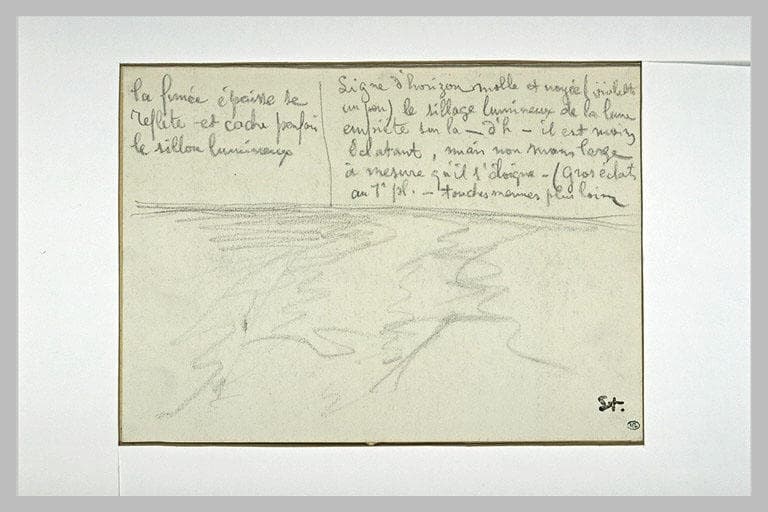 la fumée épaisse se
reflète et cache parfois
le sillon lumineux
Ligne d'horizon molle et noyée (violette
un peu) le sillage lumineux de la lune
empiète sur la — d'h — il est moins
éclatant, mais non moins large
à mesure qu'il s'éloigne — (Gros éclats
au 1er pl. — touches menues plus loin
St.